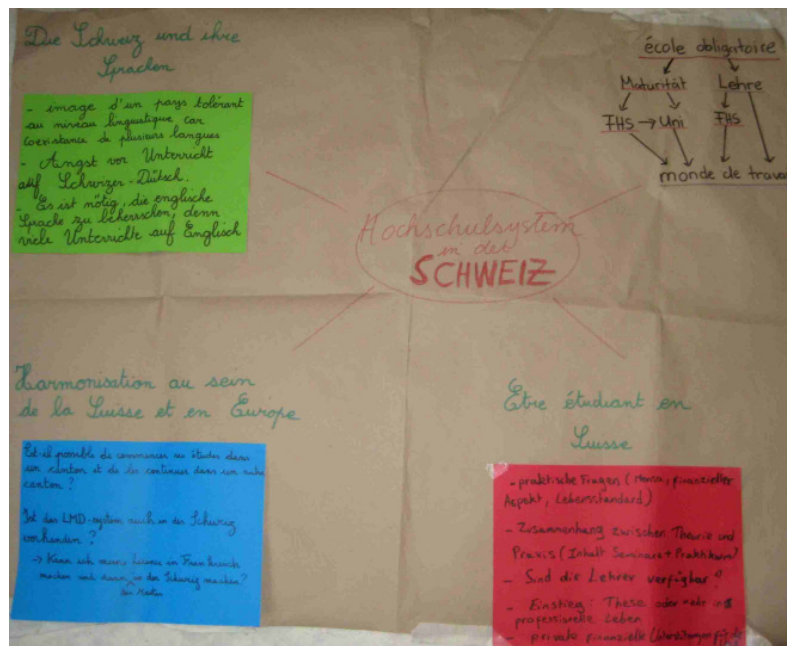 Die Schweiz und ihre
Sprachen
- image d'un pays tolérant
au niveau linguistique car
coexistance de plusieurs langues
- Angst vor Unterricht
auf Schwizer-Dütsch.
- Es ist nötig, die englische
Sprache zu beherrschen, denn
viele Unterrichte auf Englisch
école obligatoire
Maturität Lehre
FHS → Uni FHS
monde de travai
Hochschulsystem
in der
SCHWEIZ
Harmonisation au sein
de la Suisse et en Europe
Est-il possible de commencer ses études dans
un canton et de les continuer dans un autre
canton ?
Ist das LMD-system auch in der Schweiz
vorhanden ?
→ Kann ich meine Licence in Frankreich
machen und dann in der Schweiz machen?
den Master
Etre étudiant en
Suisse
- praktische Fragen (Mensa, finanzieller
Aspekt, Lebensstandard)
- Zusammenhang zwischen Theorie und
Praxis (Inhalt Seminare + Praktikum)
- Sind die Lehrer verfügbar?
- Einstieg: These oder mehr ins
professionelle Leben
- private finanzielle für